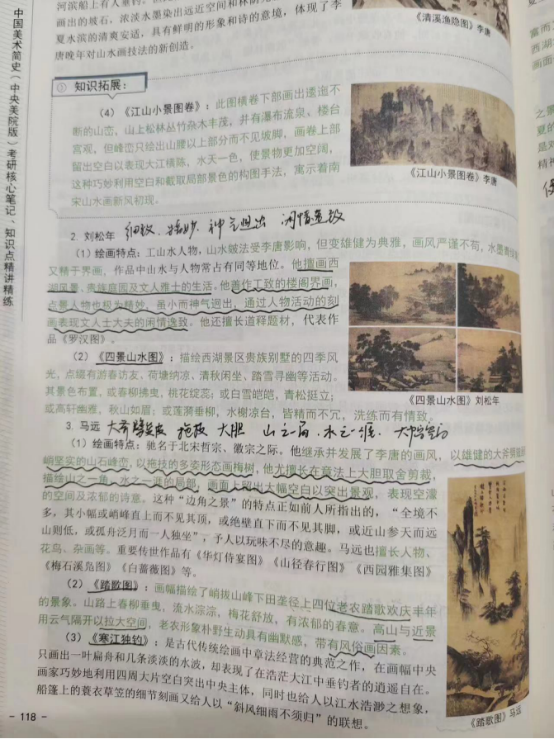 中国美术简史(中央美院版)考研核心笔记、知识点精讲精练
河滨船上有人垂钓。
画出的坡石，浓淡水墨染出远近空间和林
夏水滨的清爽安适，具有鲜明的形象和诗的意境，体现了李
唐晚年对山水画技法的新创造。
《清溪渔隐图》李唐
知识拓展：
（4）《江山小景图卷》：此图横卷下部画出逶迤不
断的山峦，山上松林丛竹杂木丰茂，并有瀑布流泉、楼台
宫观，但峰峦只绘出山腰以上部分而不见坡脚，画卷上部
留出空白以表现大江横陈、水天一色，使景物更加空阔，
这种巧妙利用空白和截取局部景色的构图手法，寓示着南
宋山水画新风初现。
《江山小景图卷》李唐
2. 刘松年 细致、精妙 神气迥出 闲情逸致
（1）绘画特点：工山水人物，山水皴法受李唐影响，但变雄健为典雅，画风严谨不苟，水墨
又精于界画，作品中山水与人物常占有同等地位。他擅画西
湖风景、贵族庭园及文人雅士的生活，他善作工致的楼阁界画，
点景人物也极为精妙，虽小而神气迥出，通过人物活动的刻
画表现文人士大夫的闲情逸致。他还擅长道释题材，代表作
品《罗汉图》。
（2）《四景山水图》：描绘西湖景区贵族别墅的四季风
光，点缀有游春访友、荷塘纳凉、清秋闲坐、踏雪寻幽等活动。
其景色布置，或春柳拂曳，桃花绽蕊；或白雪皑皑，青松挺立；
或高轩幽雅，秋山如眉；或莲漪垂柳，水榭凉台，皆精而不冗，洗练而有情致。
《四景山水图》刘松年
3. 马远 大斧劈皴 拖枝 大胆 山之一角、水之一涯、大片空白
（1）绘画特点：驰名于北宋哲宗、徽宗之际。他继承并发展了李唐的画风，以雄健的大斧劈皴
峭坚实的山石峰峦，以拖技的多姿形态画梅树，他尤擅长在章法上大胆取舍剪裁，
描绘山之一角、水之一涯的局部，画面上留出大幅空白以突出景观，表现空濛
的空间及浓郁的诗意。这种“边角之景”的特点正如前人所指出的，“全境不
多，其小幅或峭峰直上而不见其顶，或绝壁直下而不见其脚，或近山参天而远
山则低，或孤舟泛月而一人独坐”，予人以玩味不尽的意趣。马远也擅长人物、
花鸟、杂画等。重要传世作品有《华灯侍宴图》《山径春行图》《西园雅集图》
《梅石溪凫图》《白蔷薇图》等。
（2）《踏歌图》：画幅描绘了峭拔山峰下田垄径上四位老农踏歌欢庆丰年
的景象。山路上春柳垂曳，流水淙淙，梅花舒放，有浓郁的春意。高山与近景
用云气隔开以拉大空间，老农形象朴野生动具有幽默感，带有风俗画因素。
（3）《寒江独钓》：是古代传统绘画中章法经营的典范之作，在画幅中央
只画出一叶扁舟和几条淡淡的水波，却表现了在浩茫大江中垂钓者的逍遥自在。
画家巧妙地利用四周大片空白突出中央主体，同时也给人以江水浩渺之想象，
船篷上的蓑衣草笠的细节刻画又给人以“斜风细雨不须归”的联想。
《踏歌图》马远
- 118 -